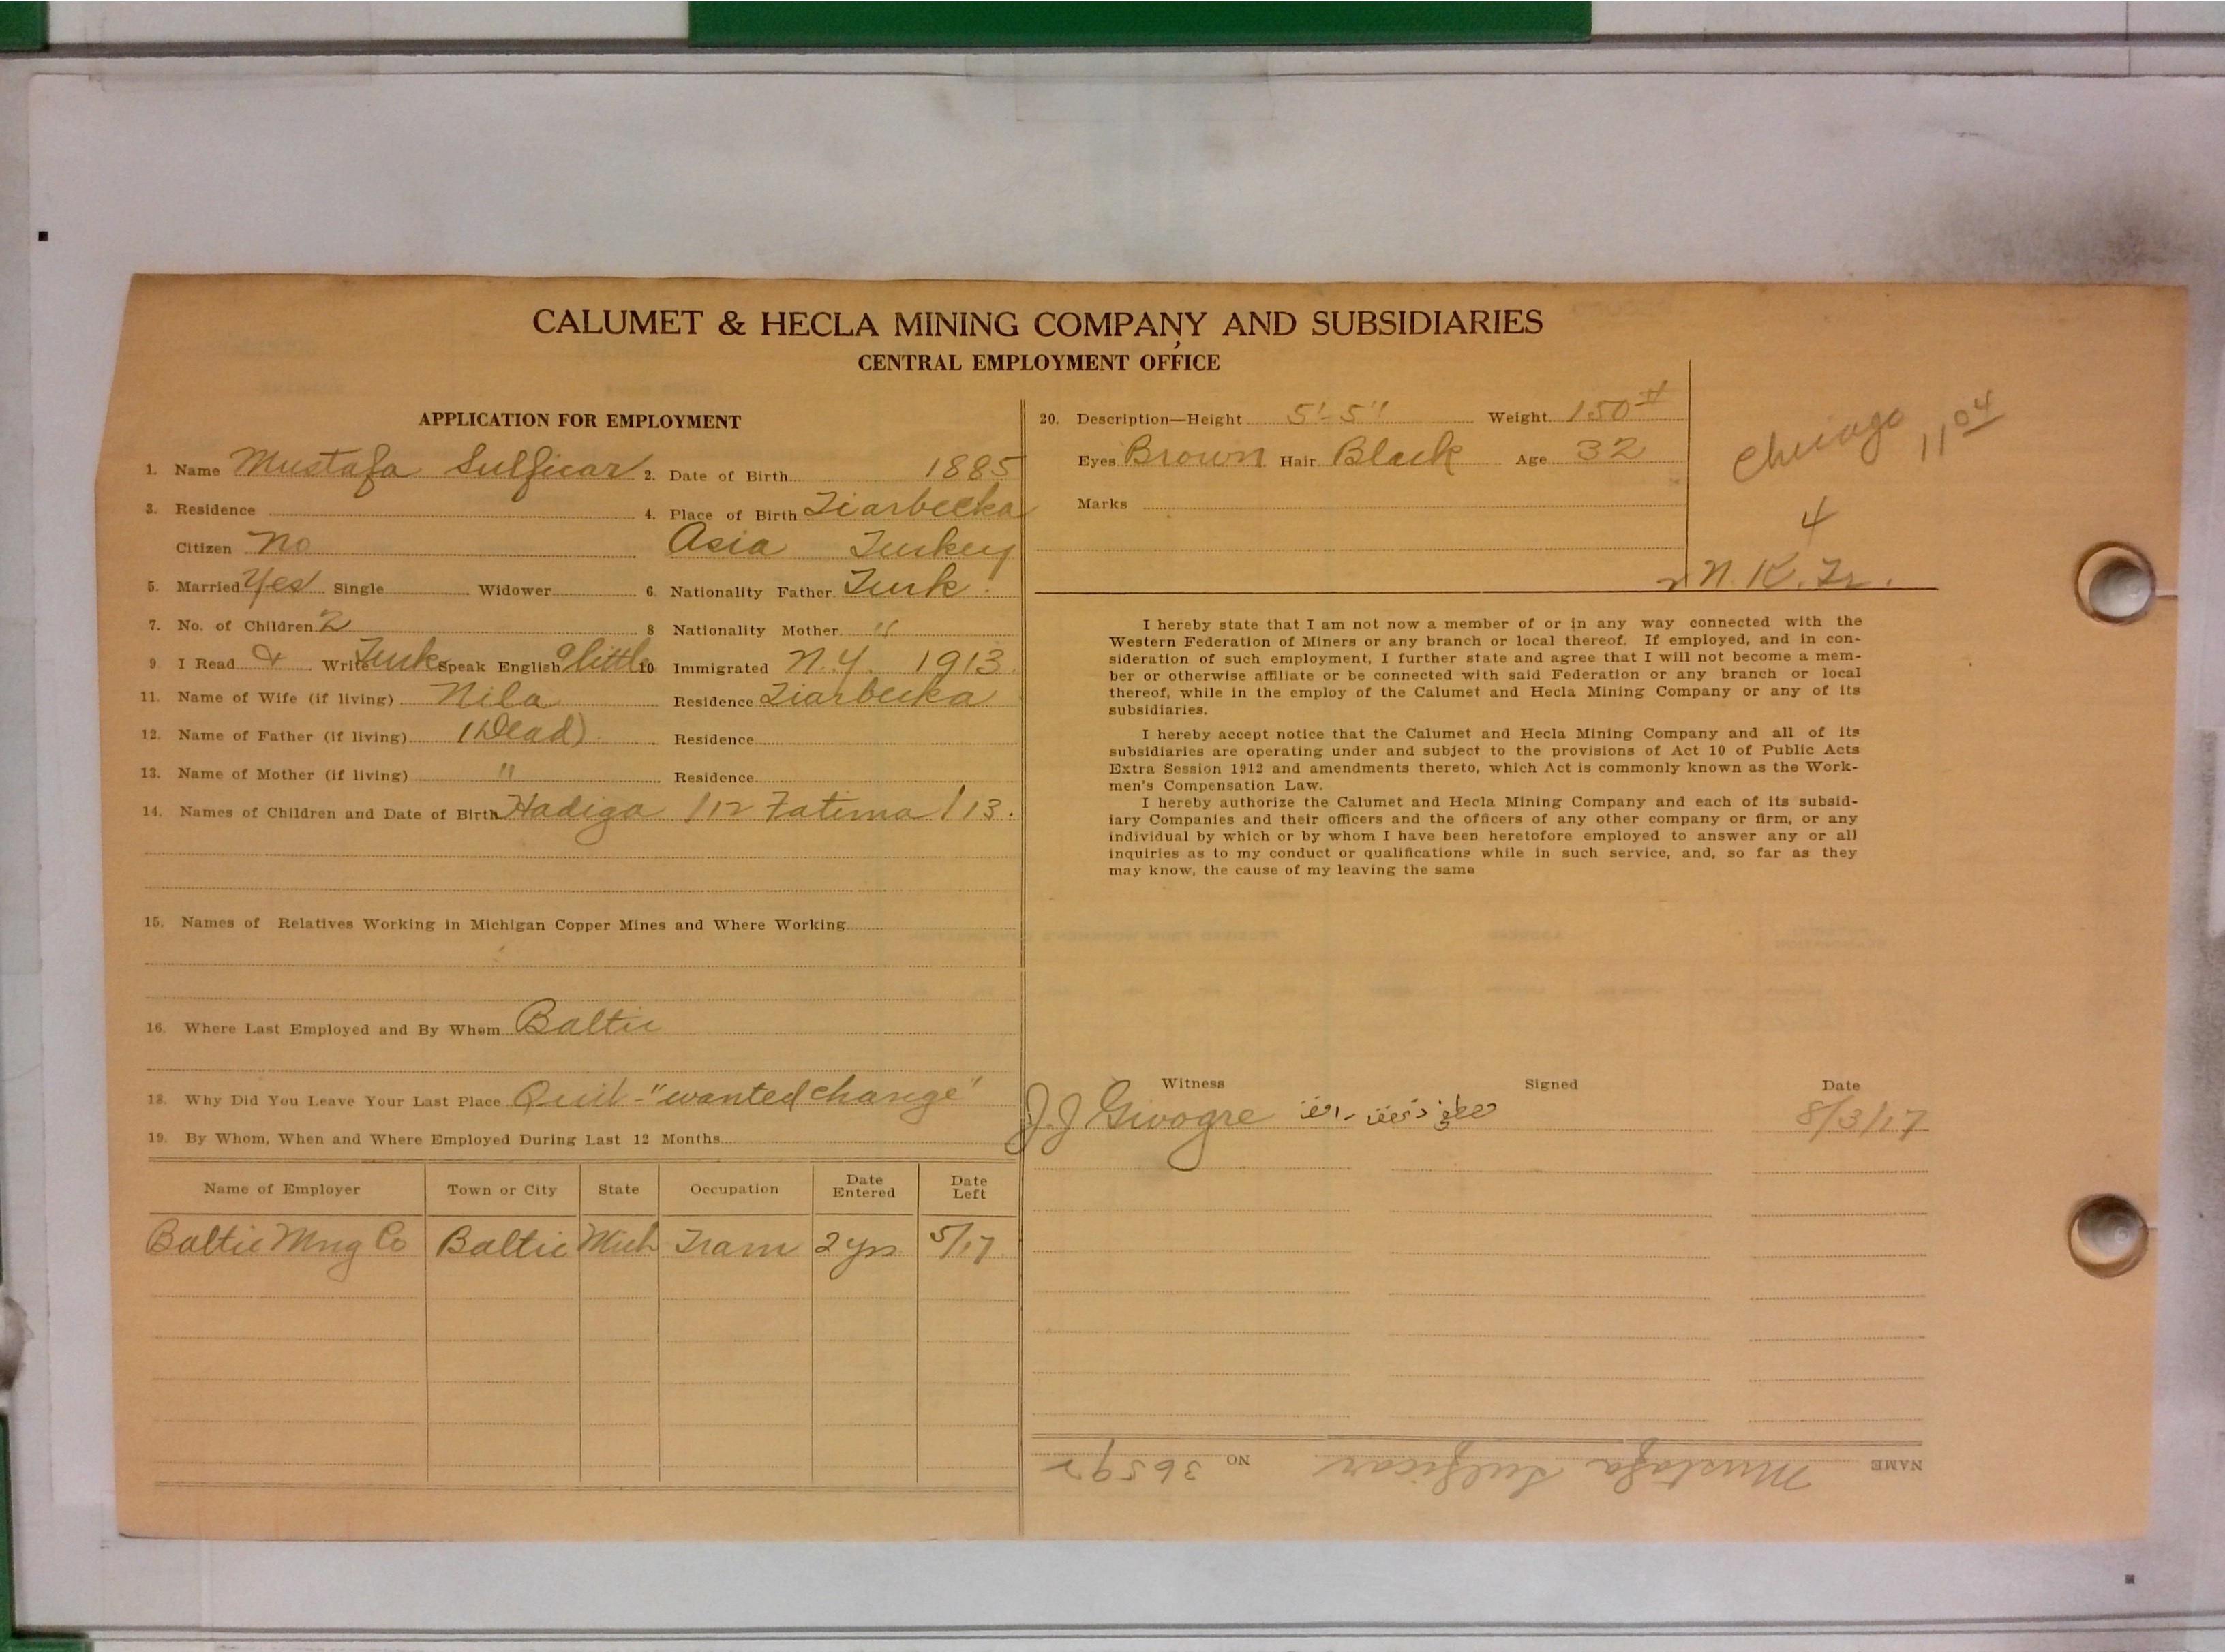 CALUMET & HECLA MINING COMPANY AND SUBSIDIARIES
CENTRAL EMPLOYMENT OFFICE
APPLICATION FOR EMPLOYMENT
1. Name Mustafa Sulficar 2. Date of Birth 1885
3. Residence 4. Place of Birth Ziarbecka
Citizen No Asia Turkey
5. Married Yes Single Widower 6. Nationality Father Turk.
7. No. of Children 2 8 Nationality Mother "
9 I Read & Write Turk Speak English a little 10 Immigrated N.Y. 1913.
11. Name of Wife (if living) Nila Residence Ziarbecka
12. Name of Father (if living) (Dead) Residence
13. Name of Mother (if living) " Residence
14. Names of Children and Date of Birth Hadiga /12 Fatima /13.
15. Names of Relatives Working in Michigan Copper Mines and Where Working
16. Where Last Employed and By Whom Baltic
18. Why Did You Leave Your Last Place Quit - "wanted change"
19. By Whom, When and Where Employed During Last 12 Months
Name of Employer Town or City State Occupation Date Entered Date Left
Baltic Mng Co Baltic Mich Tram 2 yrs 5/17
20. Description—Height 5'-5" Weight 150#
Eyes Brown Hair Black Age 32
Marks
Chicago 11 04
4
N. K. Tr.
I hereby state that I am not now a member of or in any way connected with the
Western Federation of Miners or any branch or local thereof. If employed, and in con-
sideration of such employment, I further state and agree that I will not become a mem-
ber or otherwise affiliate or be connected with said Federation or any branch or local
thereof, while in the employ of the Calumet and Hecla Mining Company or any of its
subsidiaries.
I hereby accept notice that the Calumet and Hecla Mining Company and all of its
subsidiaries are operating under and subject to the provisions of Act 10 of Public Acts
Extra Session 1912 and amendments thereto, which Act is commonly known as the Work-
men's Compensation Law.
I hereby authorize the Calumet and Hecla Mining Company and each of its subsid-
iary Companies and their officers and the officers of any other company or firm, or any
individual by which or by whom I have been heretofore employed to answer any or all
inquiries as to my conduct or qualifications while in such service, and, so far as they
may know, the cause of my leaving the same
Witness Signed Date
J. J Givogre 8/3/17
NAME Mustafa Sulficar NO 36592